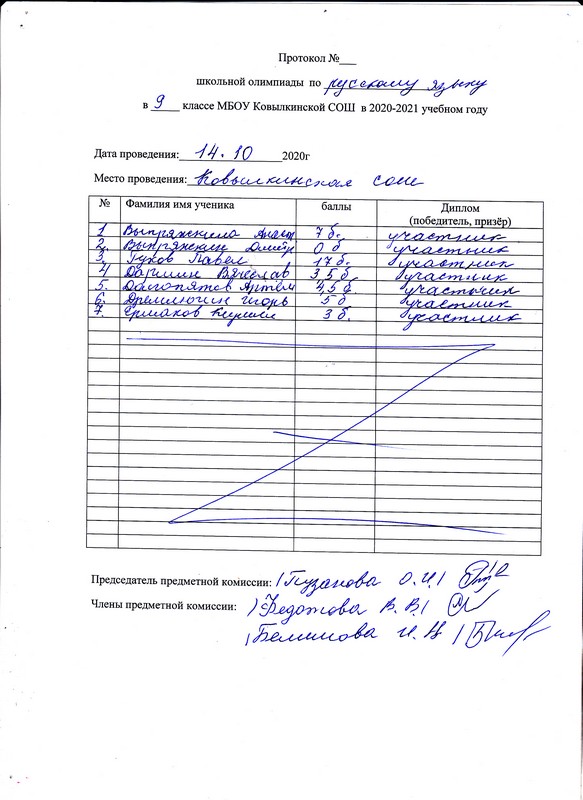 Протокол №___
школьной олимпиады по русскому языку
в 9 классе МБОУ Ковылкинской СОШ в 2020-2021 учебном году
Дата проведения: 14.10 2020г
Место проведения: Ковылкинская сош
№ Фамилия имя ученика баллы Диплом
(победитель, призёр)
1 Выпряжкина Анаст 7 б. участник
2. Выпряжкин Дмитр 0 б участник
3. Гухов Павел 17 б. участник
4 Даршин Вячеслав 3,5 б участник
5. Долгопятов Артём 4,5 б. участник
6. Дремлюгин Игорь 5 б участник
7. Ермаков 3 б. участник
Председатель предметной комиссии: /Пузанова О.И/
Члены предметной комиссии: /Федотова В.В/
/ И.Н /